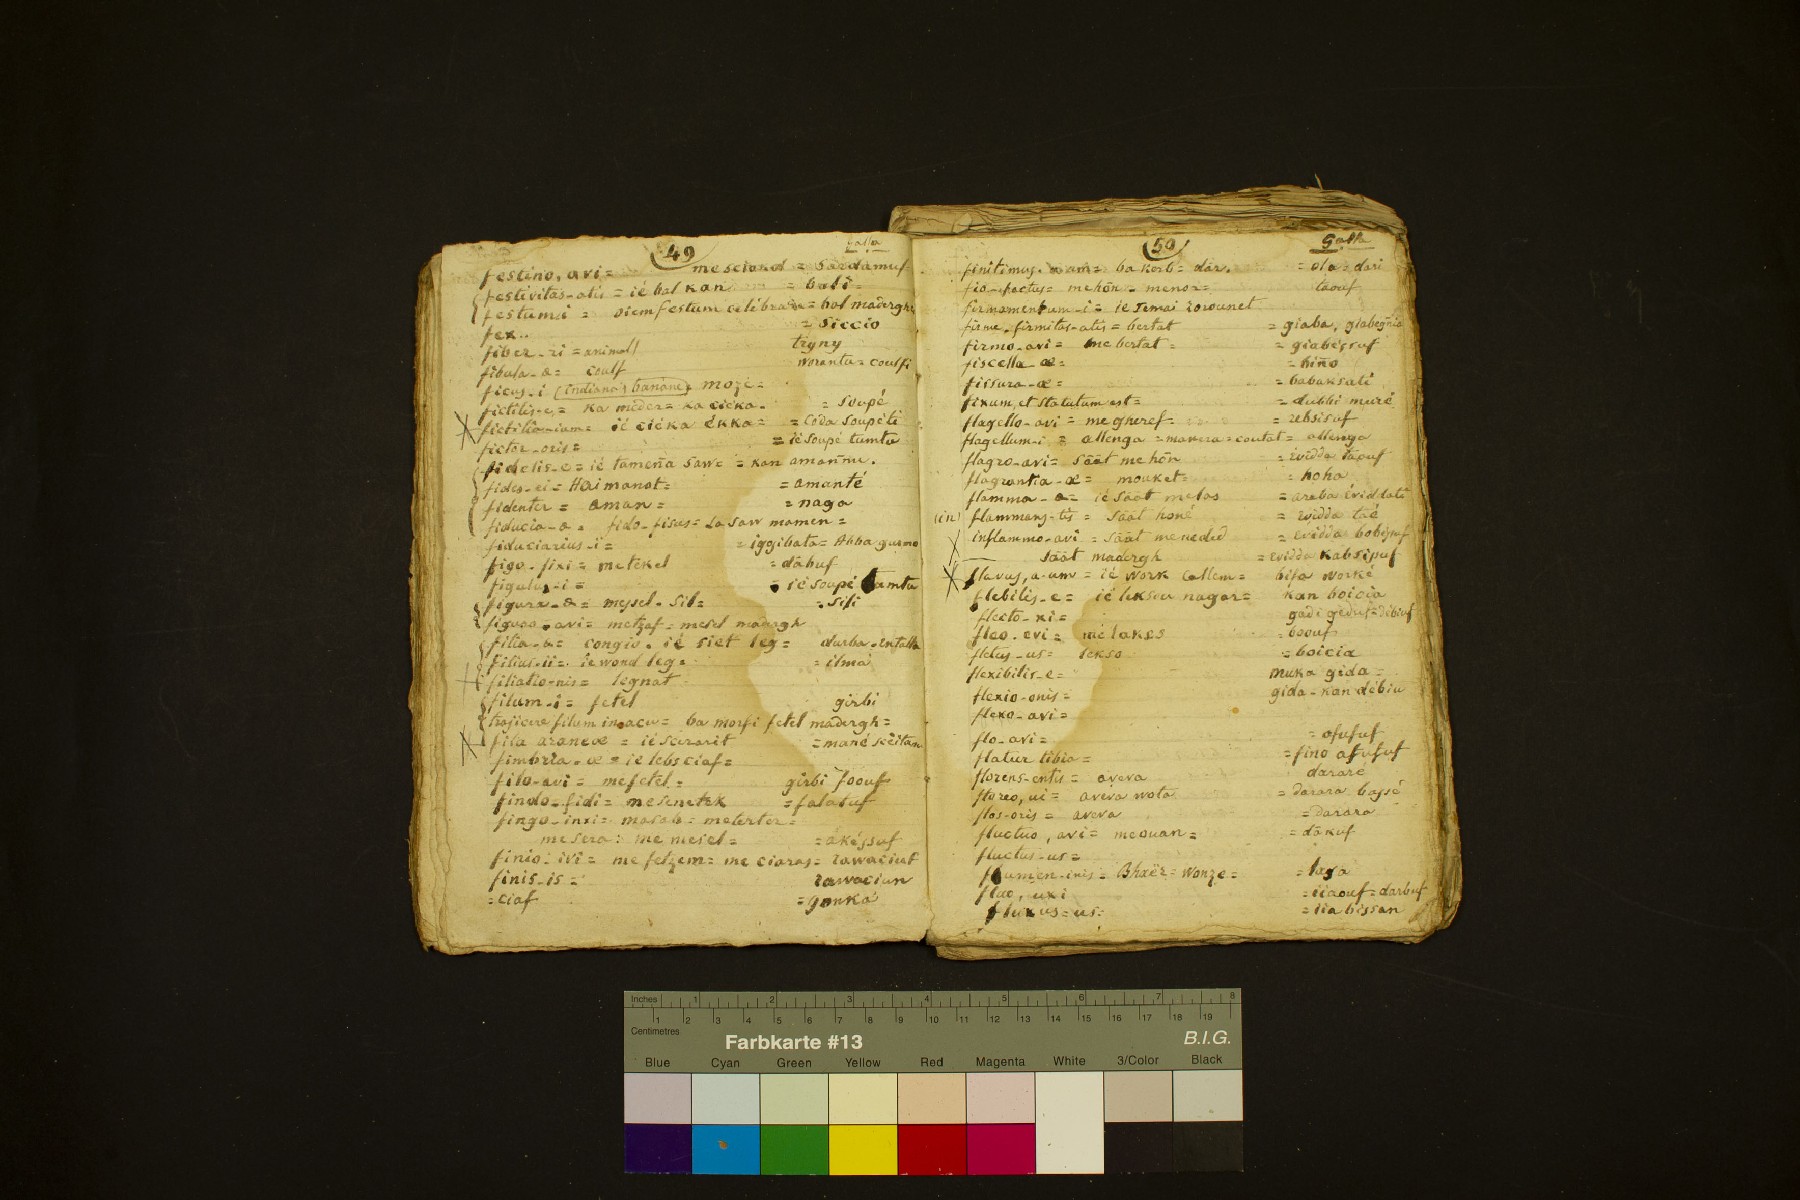 49
Galla
festino, avi = mesciand = Sardamuf
festivitas-atis = ié bal kan = bali =
festum i = diem festum celebrare = bal maderghi
fex.. = siccio
fiber-ri = animal tigny
fibula-æ = coulf woranta = coulfi
ficus-i (indiana) banane, mozé =
fictilis-e = ka méder = ka cieka. = Soupé
fictilia-ium = ié cieka ékka = = Coda Soupéti
fictor-oris = = ié Soupé tumtu
fidelis-e = ié tamena Saw = = kan amanne.
fides-ei = Haimanot = = amanté
fidenter = aman = = naga
fiducia-æ = fido-fisus = La Saw mamen =
fiduciarius-i = = iggibata = Abba gurmo
figo-fixi = metekel = dabuf
figulus-i = = ié Soupé tumtu
figura-æ = mesel-Sil = = Sili
figuro-avi = metzaf = mesel madergh
filia-æ = congio. ié siet leg = durba-intalla
filius-ii = ié wond leg = = ilma
filiatio-nis = legnat
filum-i = fetel girbi
trajicere filum in acu = ba morfi fetel madergh =
fila araneæ = ié scirarit = mané sceitan
fimbria-æ = ié lebs ciaf =
filo-avi = mefetel = girbi foouf
findo-fidi = mesenetek = falasuf
fingo-inxi = masab = meterter =
mesera: me mesel = = akéssuf
finio-ivi = me fetzem = me ciaras = rawaciuf
finis-is = rawaciun
= ciaf = gonka
50
Galla
finitimus. a um = ba korb = dar. = ola = dari
fio-factus = mehōn = menor = taouf
firmamentum-i = ié Semai zorounet
firme, firmitas-atis = bertat = giaba, giabegnia
firmo-avi = me bertat = = giabéssuf
fiscella æ = = hiño
fissura-æ = = babaksati
fixum, et statutum est = = dubbi muré
flagello-avi = megheref = = rebsisuf
flagellum-i = allenga = marera = coutat = allenga
flagro-avi = Säät mehōn = evidda tapuf
flagrantia-æ = mouket = = hoha
flamma-æ = ié Säät melas = araba éviddati
(in) flammans-tis = Säät honé = evidda taé
inflammo-avi = Säät menedid = evidda bobessuf
Säät madergh = evidda kabsipuf
flavus, a-um = ié work Callem = bifa worké
flebilis-e = ié leksou nagar = kan boicia
flecto-xi = gadi gédut = débiuf
fleo-evi = mélakes = boouf
fletus-us = lekso = boicia
flexibilis-e = muka gida =
flexio-onis = gida-kan débiu
flexo-avi =
flo-avi = = afufuf
flatur tibia = = fino afufuf
florens-entis = aveva dararé
floreo, ui = avéva wota = darara bassé
flos-oris = aveva = darara
fluctuo, avi = meouan = = dākuf
fluctus-us =
flumen-inis = Bhaër = Wonze = = laga
fluo, uxi = iiaouf = darbuf
fluxus = us = = iia bissan
Inches 1 2 3 4 5 6 7 8
1 2 3 4 5 6 7 8 9 10 11 12 13 14 15 16 17 18 19
Centimetres
Farbkarte #13
B.I.G.
Blue Cyan Green Yellow Red Magenta White 3/Color Black